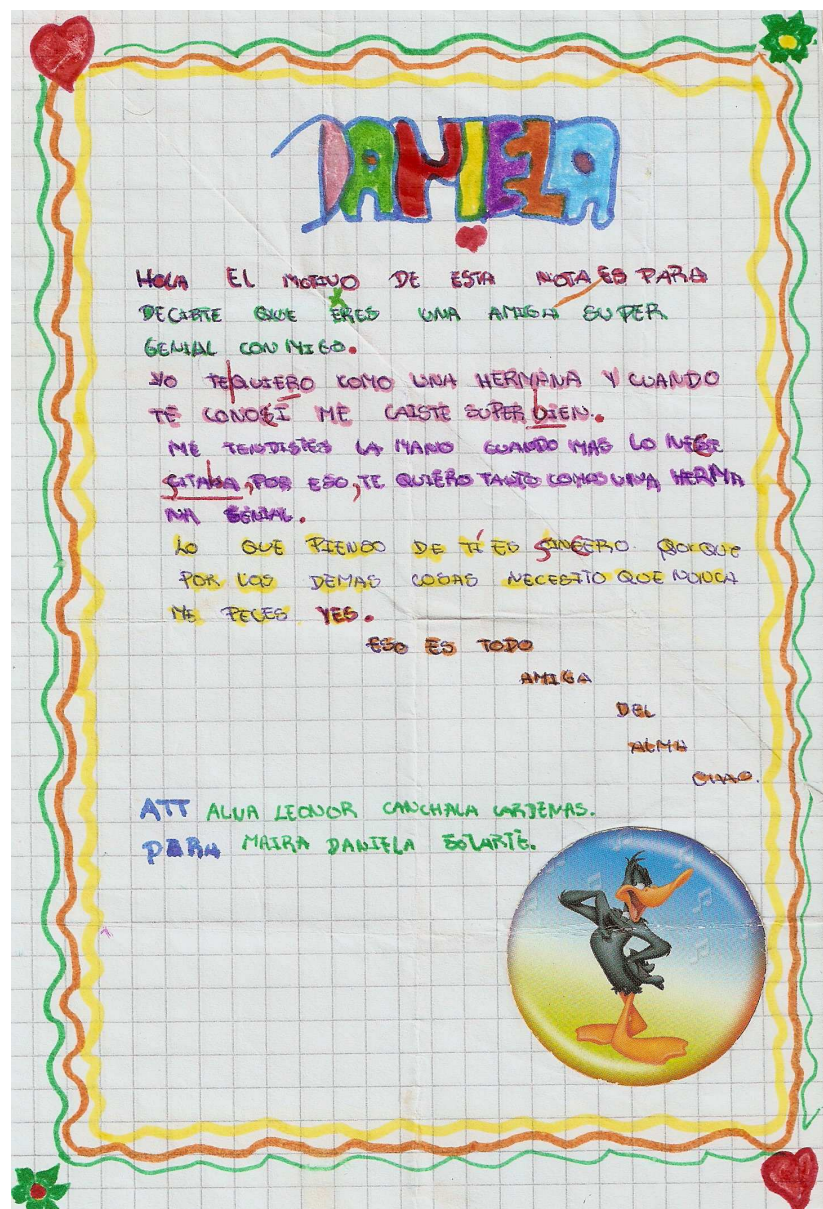 DANIELA
HOLA EL MOTIVO DE ESTA NOTA ES PARA
DECIRTE QUE ERES UNA AMIGA SUPER
GENIAL CONMIGO.
YO TE QUIERO COMO UNA HERMANA Y CUANDO
TE CONOCI ME CAISTE SUPER BIEN.
ME TENDISTES LA MANO CUANDO MAS LO NECE
SITABA, POR ESO, TE QUIERO TANTO COMO UNA HERMA
NA GENIAL.
LO QUE PIENSO DE TÍ ES SINCERO PORQUE
POR LAS DEMAS COSAS NECESITO QUE NUNCA
ME DEJES YES.
ESO ES TODO
AMIGA
DEL
ALMA
CHAO.
ATT ALVA LEONOR CANCHALA CARDENAS.
PARA MAIRA DANIELA SOLARTE.